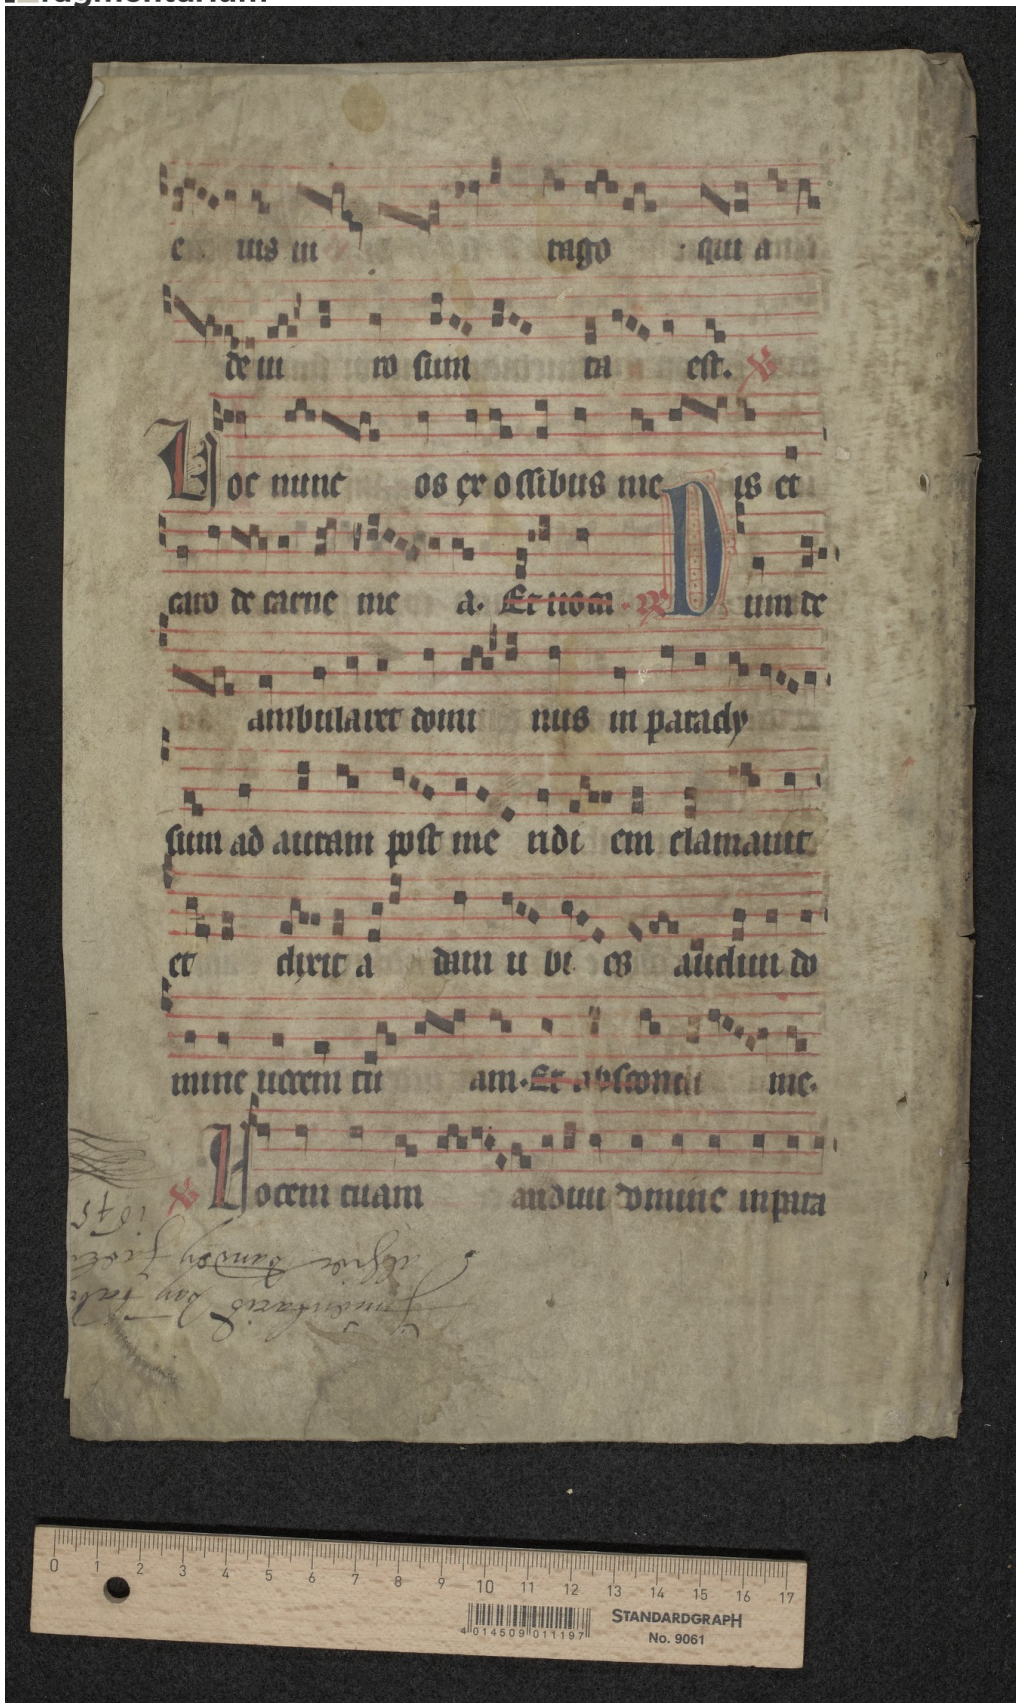 e ius ui rago qui a
de ui ro sum ta est. V
Hoc nunc os ex ossibus me is et
caro de carne me a. Et uoca. R Dum de
ambularet domi nus in parady
sum ad auram post me ridi em clamauit
et dixit a dam u bi es audiui do
mine uocem tu am. Et abscondi me.
V Vocem tuam audiui domine in para
1675
0 1 2 3 4 5 6 7 8 9 10 11 12 13 14 15 16 17
4 014509 011197
STANDARDGRAPH
No. 9061